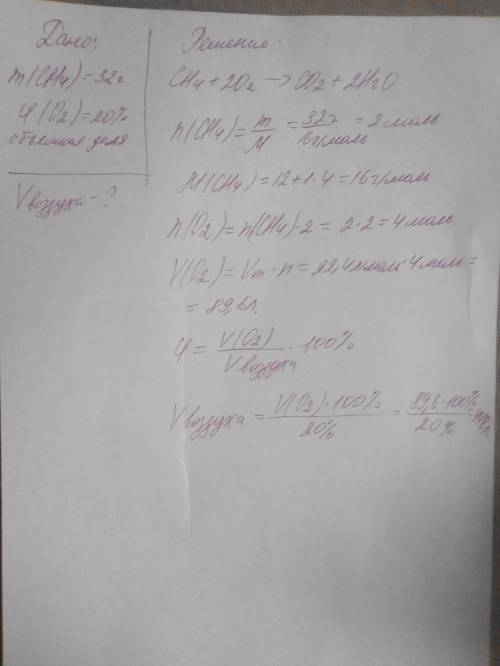 Дано:
m(CH4)=32г
φ(O2)=20%
объемная доля
Vвоздуха-?
Решение:
CH4+2O2→CO2+2H2O
n(CH4)=m/M=32г/16г/моль=2моль
M(CH4)=12+1·4=16г/моль
n(O2)=n(CH4)·2=2·2=4моль
V(O2)=Vm·n=22,4л/моль·4моль=
=89,6л.
φ=V(O2)/Vвоздуха·100%
Vвоздуха=V(O2)·100%/20%=89,6·100%/20%=